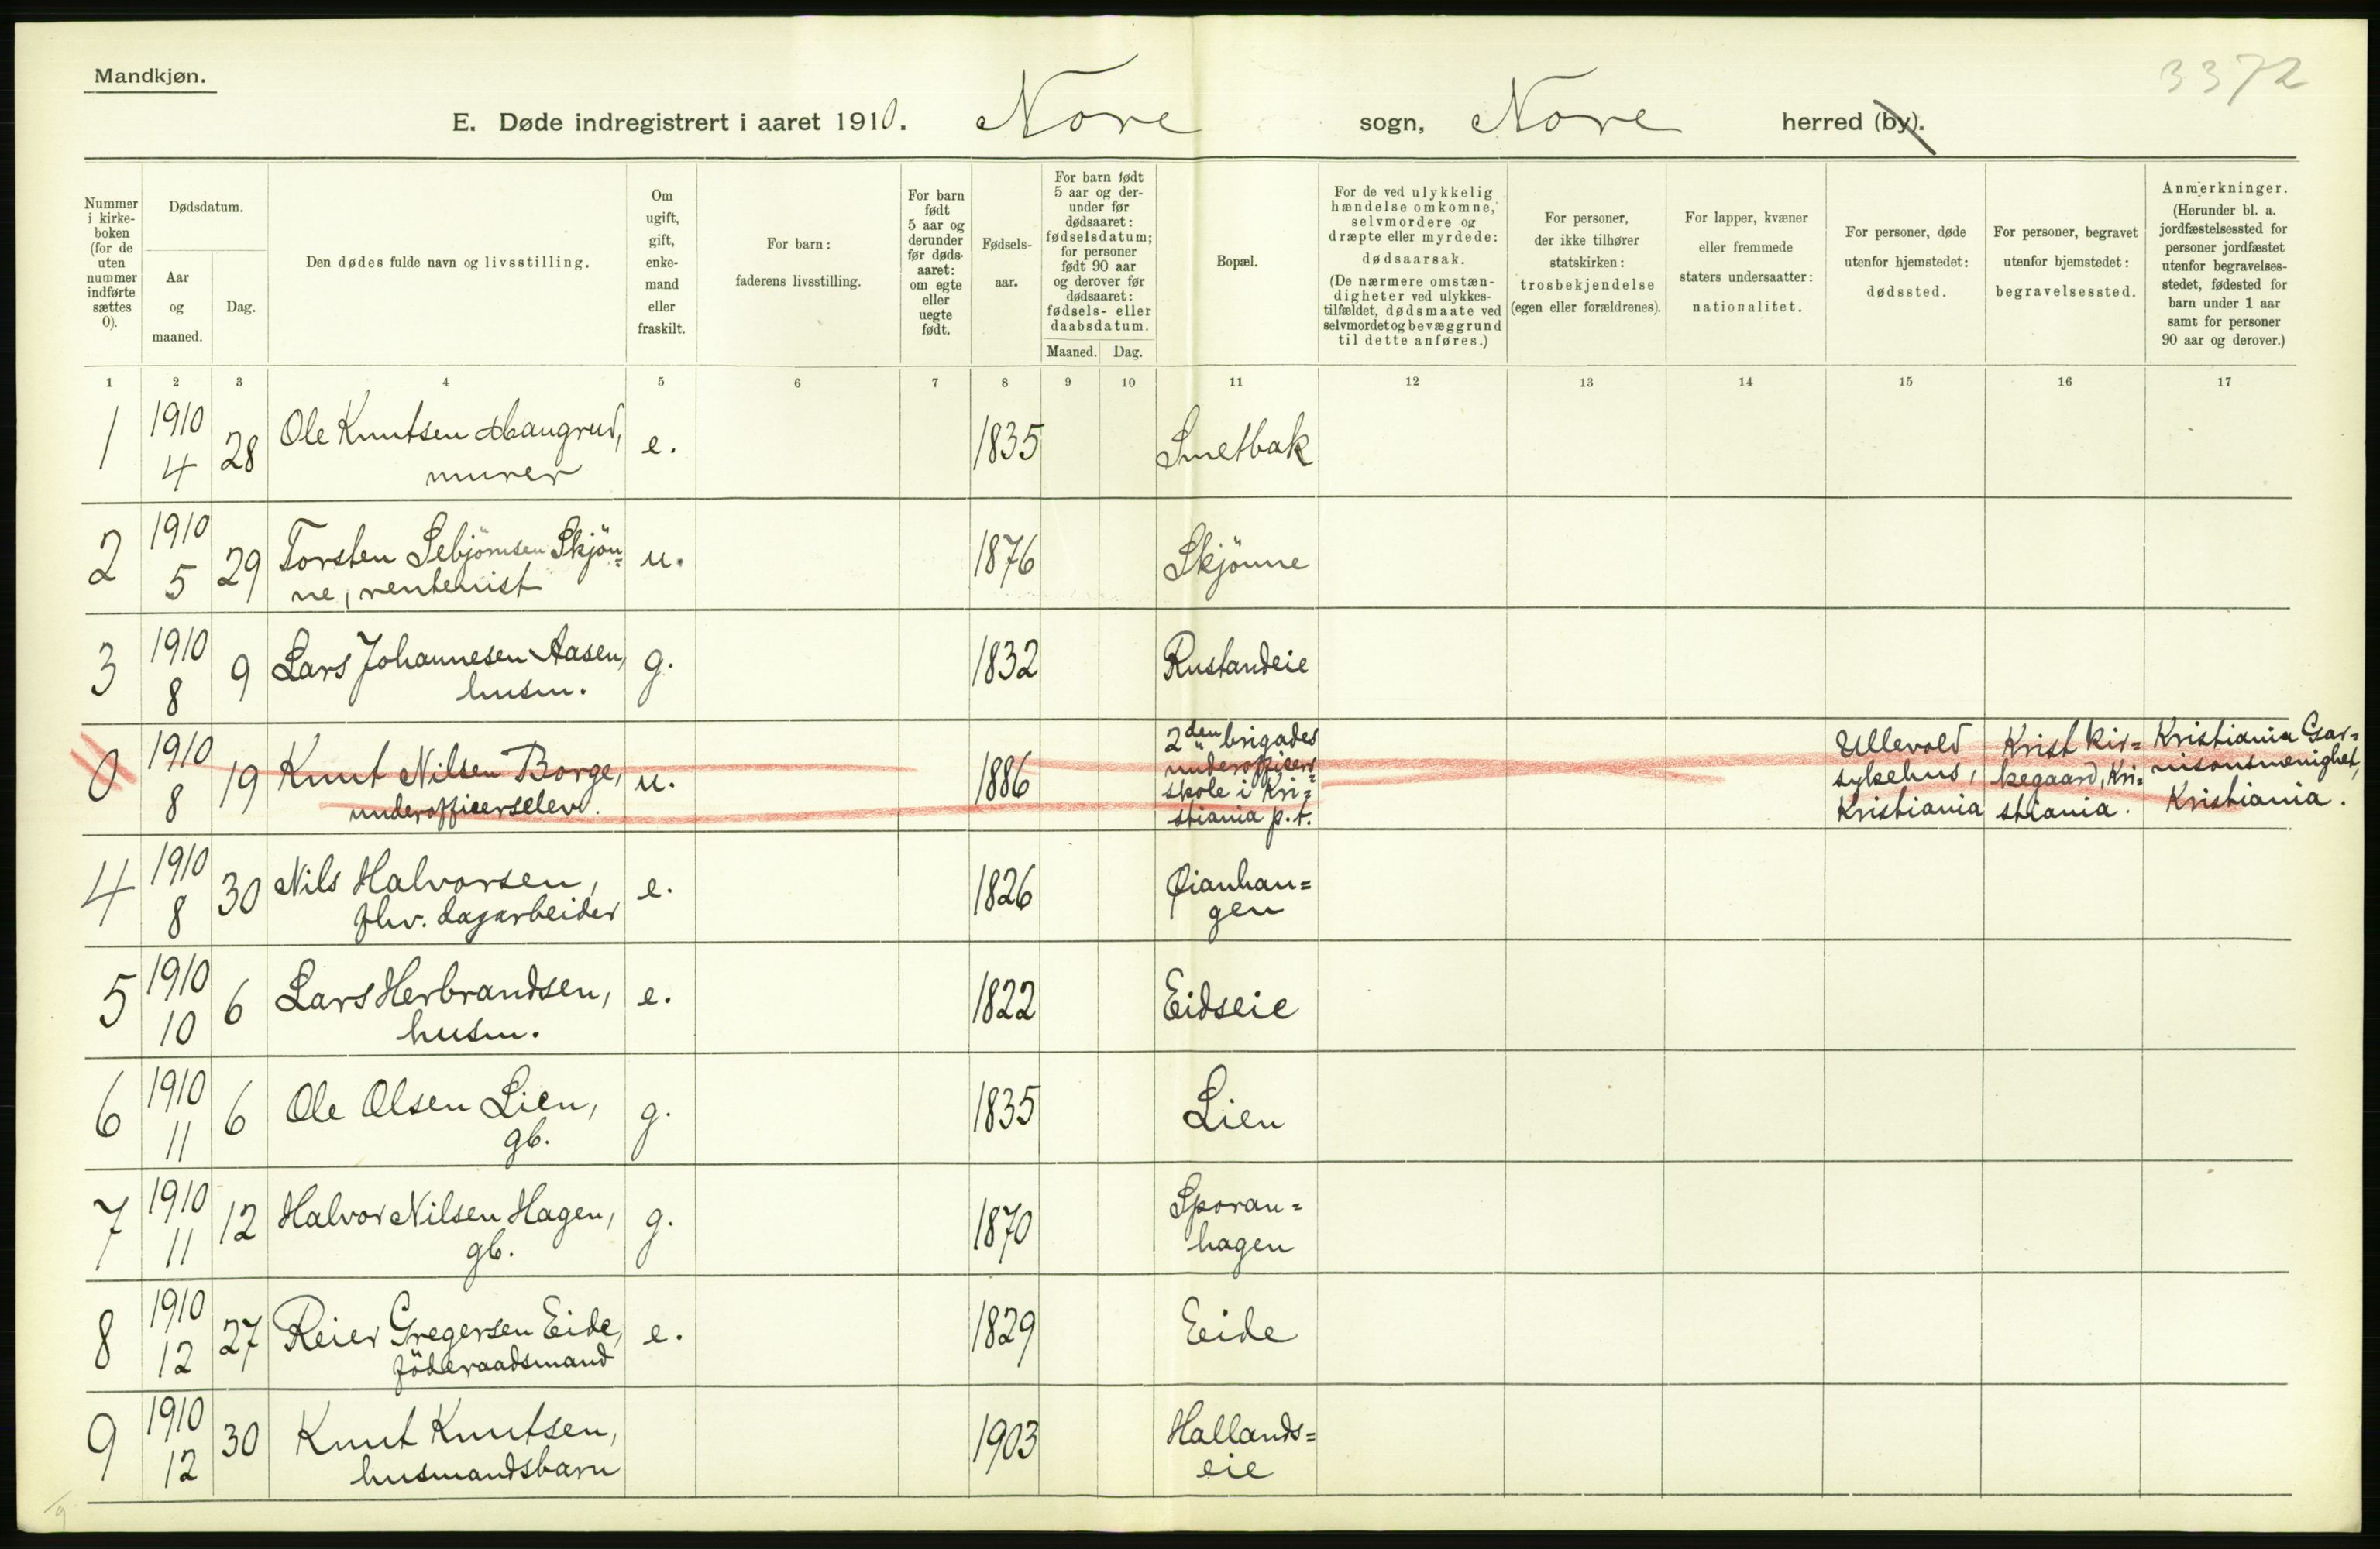 Mandkjøn.
3372
E. Døde indregistrert i aaret 1910. Nore sogn, Nore herred (by).
Nummer i kirke-boken (for de uten nummer indførte sættes 0).
Dødsdatum.
Aar og maaned.
Dag.
Den dødes fulde navn og livsstilling.
Om ugift, gift, enke-mand eller fraskilt.
For barn: faderens livsstilling.
For barn født 5 aar og derunder før døds-aaret: om egte eller uegte født.
Fødsels-aar.
For barn født 5 aar og der-under før dødsaaret: fødselsdatum; for personer født 90 aar og derover før dødsaaret: fødsels- eller daabsdatum.
Maaned. Dag.
Bopæl.
For de ved ulykkelig hændelse omkomne, selvmordere og dræpte eller myrdede: dødsaarsak.
(De nærmere omstæn-digheter ved ulykkes-tilfældet, dødsmaate ved selvmordet og bevæggrund til dette anføres.)
For personer, der ikke tilhører statskirken: trosbekjendelse (egen eller forældrenes).
For lapper, kvæner eller fremmede staters undersaatter: nationalitet.
For personer, døde utenfor hjemstedet: dødssted.
For personer, begravet utenfor hjemstedet: begravelsessted.
Anmerkninger.
(Herunder bl. a. jordfæstelsessted for personer jordfæstet utenfor begravelses-stedet, fødested for barn under 1 aar samt for personer 90 aar og derover.)
1 2 3 4 5 6 7 8 9 10 11 12 13 14 15 16 17
1 1910 4 28 Ole Knutsen Haugrud, e. 1835 Smetbak
murer
2 1910 5 29 Torsten Sebjörnsen Skjön= u. 1876 Skjönne
ne, rentenist
3 1910 8 9 Lars Johannesen Aasen, g. 1832 Rustandeie
husm.
0 1910 8 19 Knut Nilsen Borge, u. 1886
underofficerselev.
2den brigades
underofficers=
skole i Kri=
stiania p.t.
Ullevold
sykehus,
Kristiania
Krist kir=
kegaard, Kri=
stiania.
Kristiania Gar=
nisonsmenighet,
Kristiania.
4 1910 8 30 Nils Halvorsen, e. 1826 Øianhan=
fhv. dagarbeider gen
5 1910 10 6 Lars Herbrandsen, e. 1822 Eidseie
husm.
6 1910 11 6 Ole Olsen Lien, g. 1835 Lien
gb.
7 1910 11 12 Halvor Nilsen Hagen, g. 1870 Sporan=
gb. hagen
8 1910 12 27 Reier Gregersen Eide, e. 1829 Eide
föderaadsmand
9 1910 12 30 Knut Knutsen, 1903 Hallands=
husmandsbarn eie